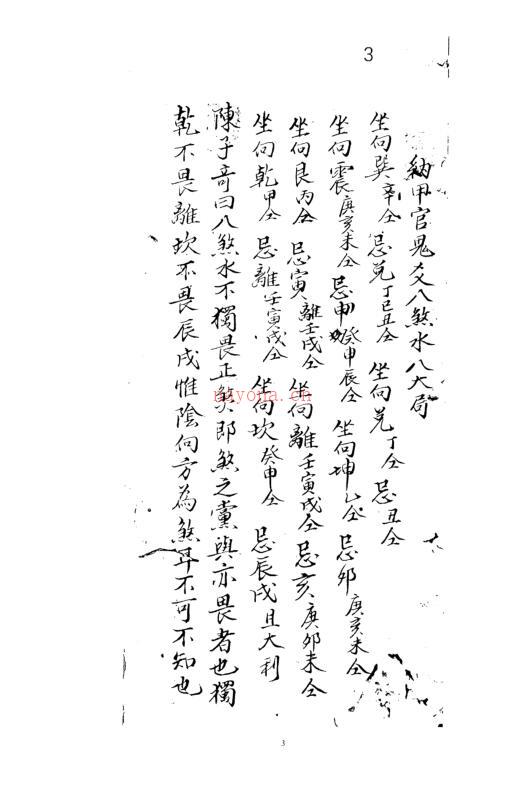 3
納甲官鬼爻八煞水八大局
坐向巽辛仝 忌兌丁巳丑仝 坐向兌丁仝 忌丑仝
坐向震庚亥未仝 忌申坎癸申辰仝 坐向坤乙仝 忌卯庚亥未仝
坐向艮丙仝 忌寅離壬戌仝 坐向離壬寅戌仝 忌亥庚卯未仝
坐向乾甲仝 忌離壬寅戌仝 坐向坎癸申仝 忌辰戌且大利
陳子奇曰八煞水不獨畏正煞即煞之黨與亦畏者也獨
乾不畏離坎不畏辰戌惟陰向方為煞耳不可不知也
nayona.cn
3